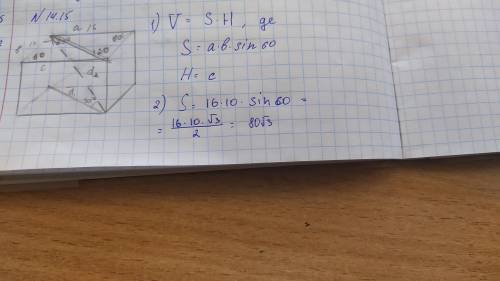 N 14.15
a 16
60
b 10
60
120
c
d₂
d₁
1) V = S·H, де
S = a·b·sin 60
H = c
2) S = 16·10·sin 60 =
= 16·10·√3 / 2 = 80√3